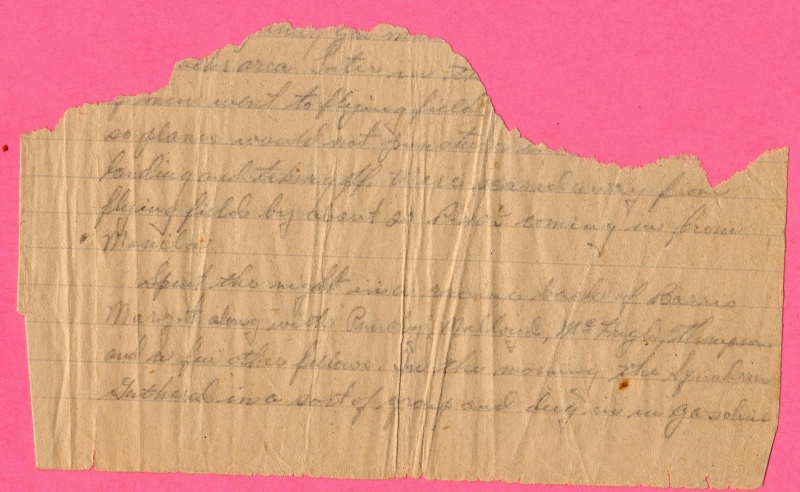 area Later in the
men went to flying field
so planes would not puncture
landing and taking off. Were scared away from
flying field by about 21 P40's coming in from
Manila.
Spent the night in a ravine back of Barrio
Margot along with Malloyd, McHugh, Thompson
and a few other fellows. In the morning the Squadron
Gathered in a sort of group and dug in in gasoline